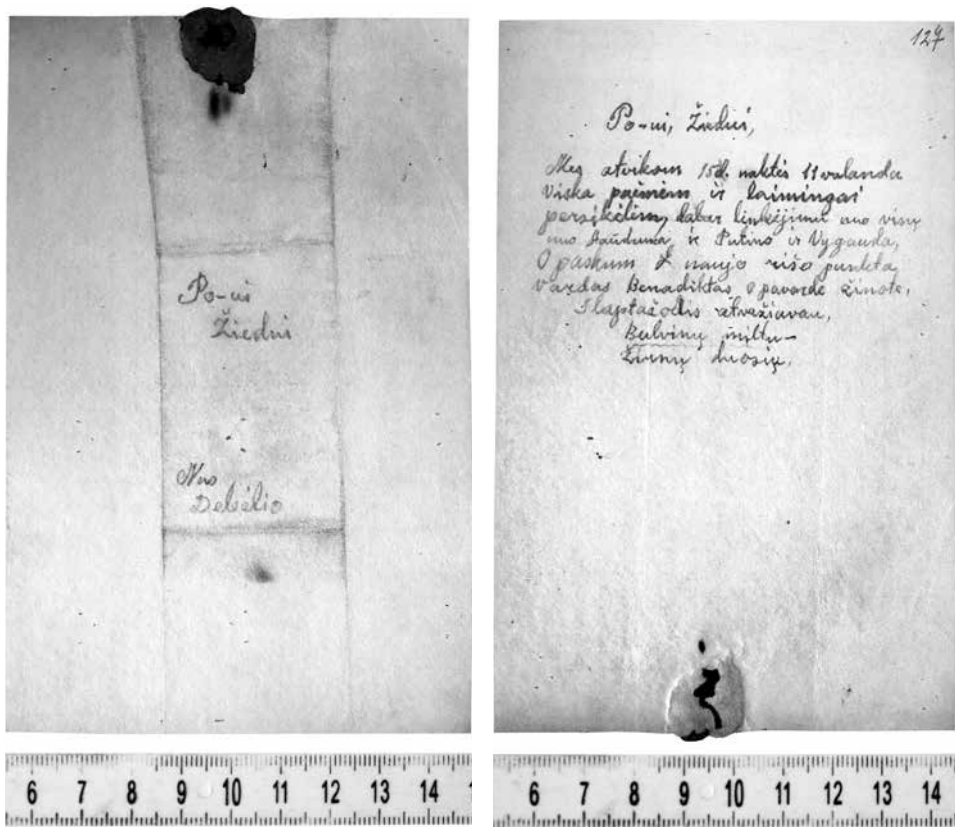 Po-ui
Žiedui
Nuo
Debėlio
6 7 8 9 10 11 12 13 14
127
Po-ui, Žiedui,
Mes atvikom 15d. naktės 11 valanda
Viska paėmėm ir laimingai
persikėlėm, dabar linkėjimu nuo visų
nuo Daúduna, ir Putino ir Vygauda,
O paskum iš naujo rišo punkta
Vardas Benadiktas o pavardė žinote,
Slaptažodis atvažiavau,
Bulvinų miltu-
Žirnų duosių.
6 7 8 9 10 11 12 13 14